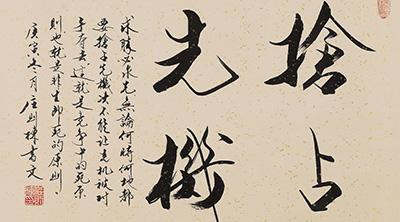 搶占
先機
求勝必求先無論何時何地都
要搶占先機決不能讓先機被对
手夺去這就是竞争中的原
則也就是非生即死的原則
庚寅冬月庄則棟書文